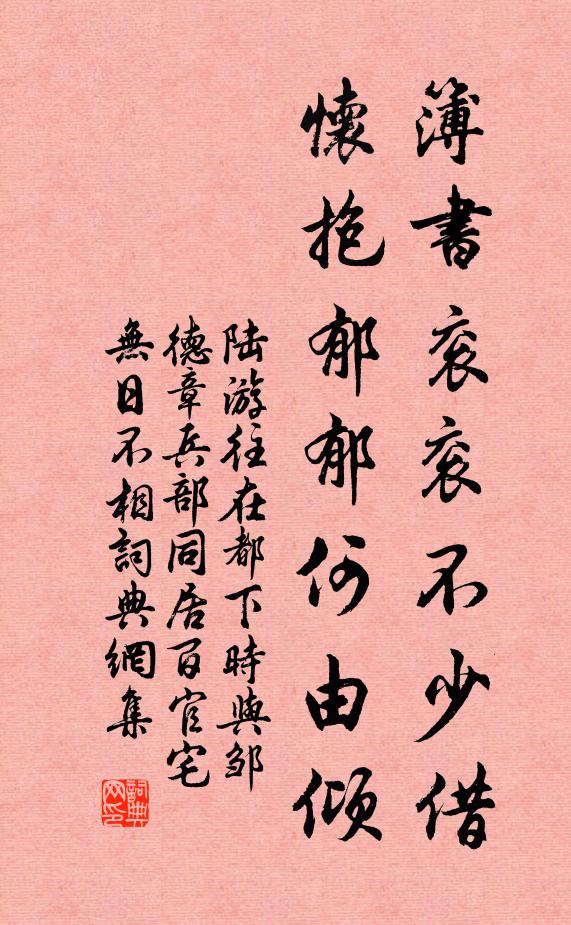 簿書衮衮不少借
懷抱郁郁何由傾
陆游往在都下時與邹
德章兵部同居百官宅
無日不相詞典網集
詞典
网印